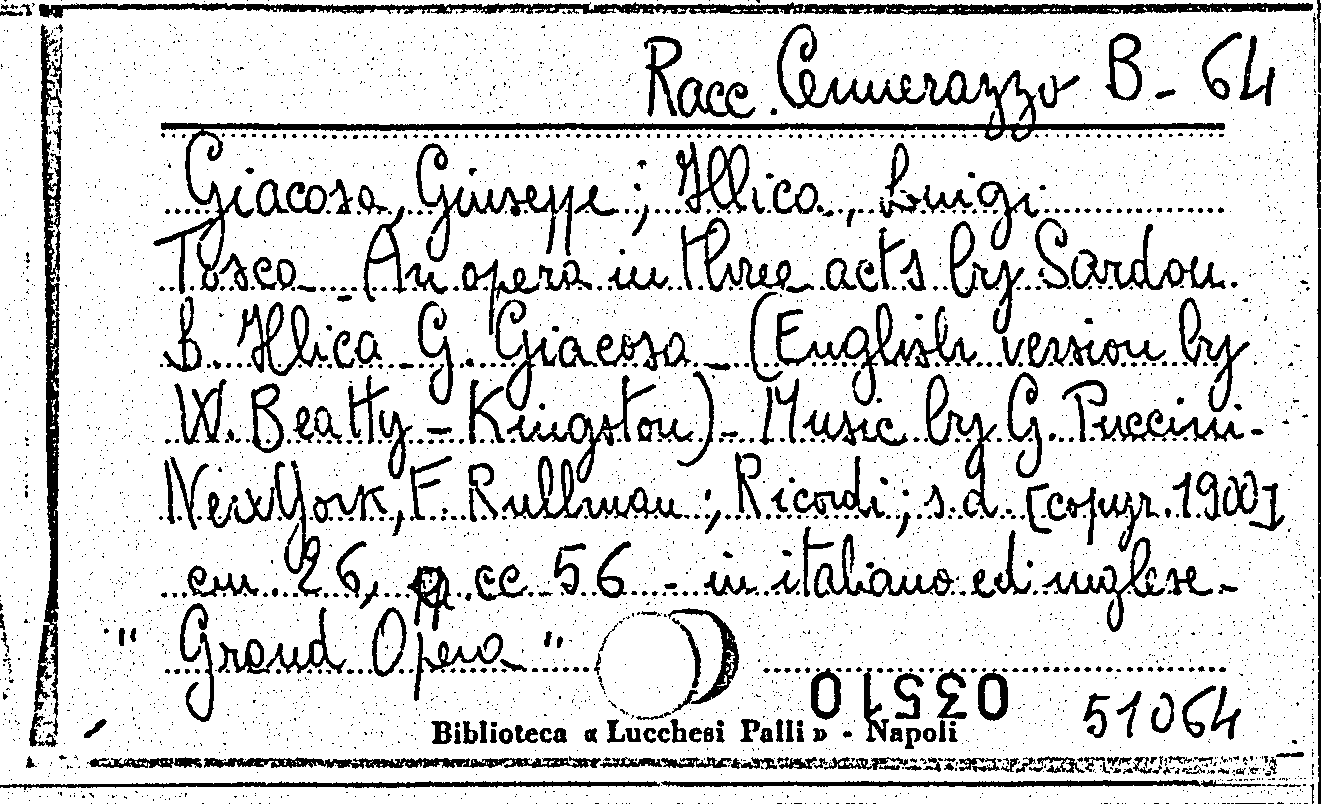 Racc. Cennerazzo B - 64
Giacosa, Giuseppe ; Illica, Luigi
Tosca - An opera in three acts by Sardou.
L. Illica - G. Giacosa - (English version by
W. Beatty - Kingston) - Music by G. Puccini -
New York, F. Rullman ; Ricordi ; s.d. [copyr. 1900]
cm. 26, pp. 56 - in italiano ed inglese -
" Grand Opera "
03510
51064
Biblioteca « Lucchesi Palli » - Napoli